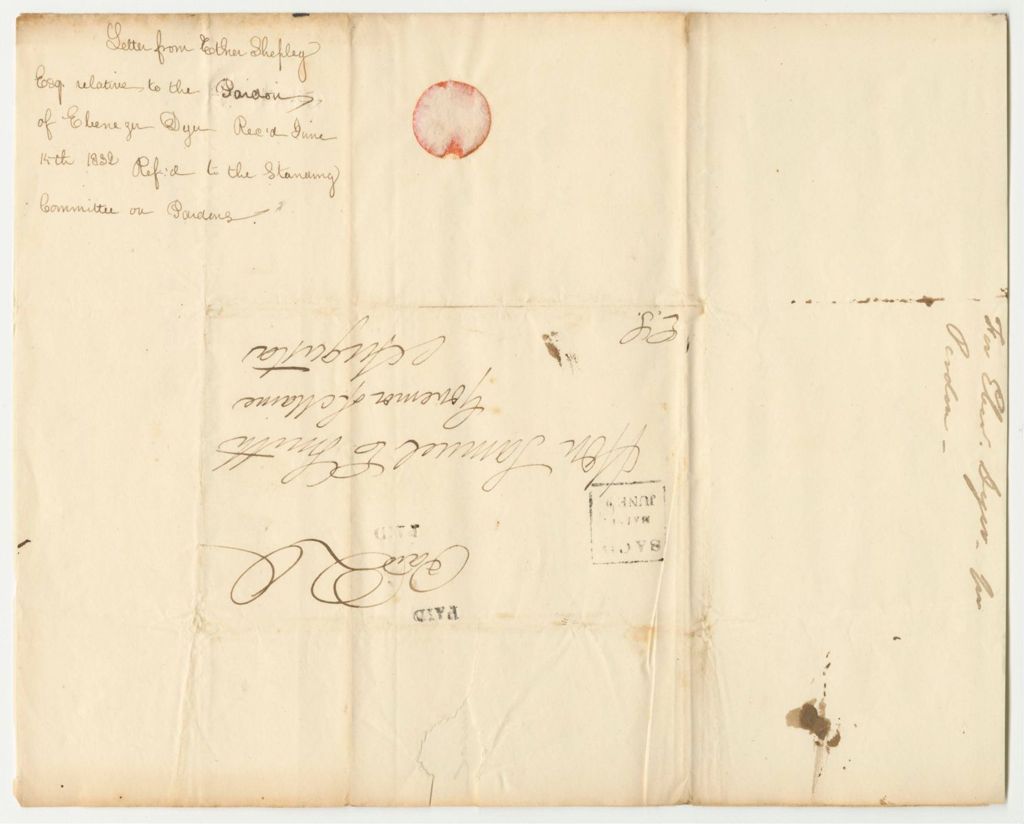 Letter from Ether Shepley
Esq relative to the Pardon
of Ebenezer Dyer Rec'd June
15th 1832 Ref'd to the Standing
Committee on Pardons
E.S.
Hon Samuel E Smith
Governor of Maine
Augusta
SACO
JUNE 9
Paid
PAID
PAID
For Eben. Dyer - for
Pardon -